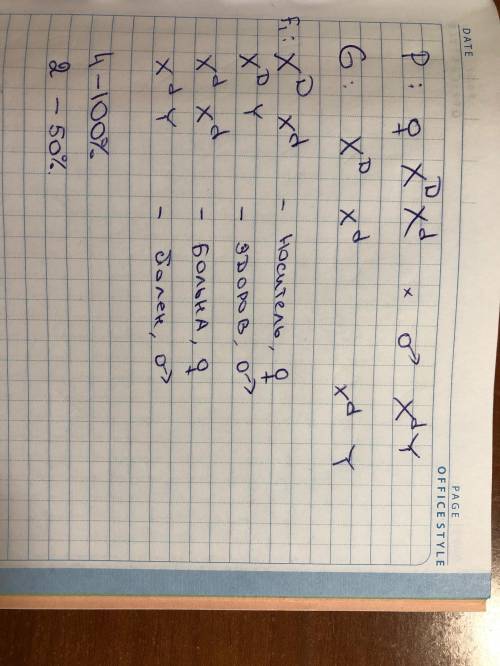 DATE
PAGE
OFFICESTYLE
P: ♀ X^D X^d × ♂ X^d Y
G: X^D X^d X^d Y
F₁: X^D X^d - носитель, ♀
X^D Y - здоров, ♂
X^d X^d - больна, ♀
X^d Y - болен, ♂
4 - 100%
2 - 50%.